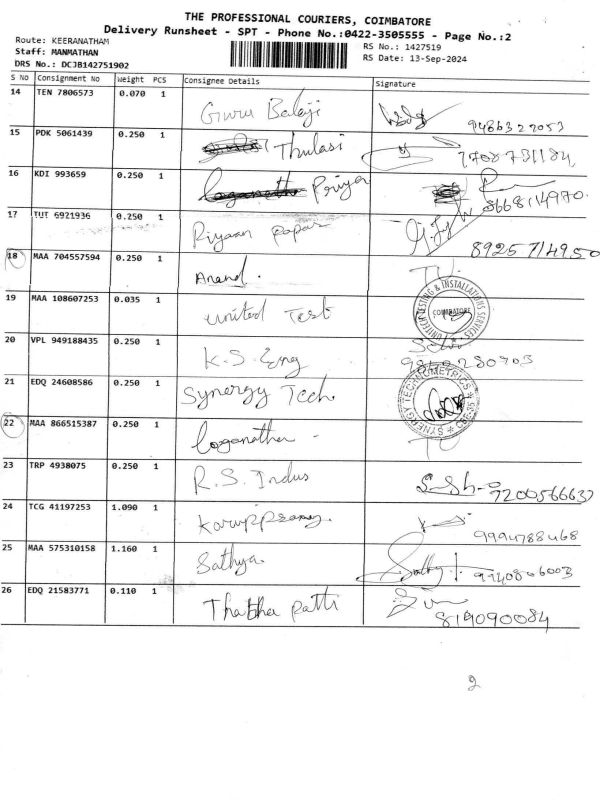 THE PROFESSIONAL COURIERS, COIMBATORE
Delivery Runsheet - SPT - Phone No.:0422-3505555 - Page No.:2
Route: KEERANATHAM
Staff: MANMATHAN
DRS No.: DCJB142751902
RS No.: 1427519
RS Date: 13-Sep-2024
S No Consignment No Weight PCS Consignee Details Signature
14 TEN 7806573 0.070 1 Guru Balaji
15 PDK 5061439 0.250 1 Thulasi
16 KDI 993659 0.250 1 Priya 8668114970
17 TUT 6921936 0.250 1 Riyaan papar 8925714950
18 MAA 704557594 0.250 1 Anand.
19 MAA 108607253 0.035 1 united Test
UNITECH TESTING & INSTALLATIONS SERVICES
COIMBATORE
20 VPL 949188435 0.250 1 K.S. Eng
21 EDQ 24608586 0.250 1 Synergy Tech
SYNERGY TECHNOMETRICS
22 MAA 866515387 0.250 1 Loganathan
23 TRP 4938075 0.250 1 R.S. Indus 7200566637
24 TCG 41197253 1.090 1 9994788468
25 MAA 575310158 1.160 1 Sathya
26 EDQ 21583771 0.110 1 Thatha Patti
2